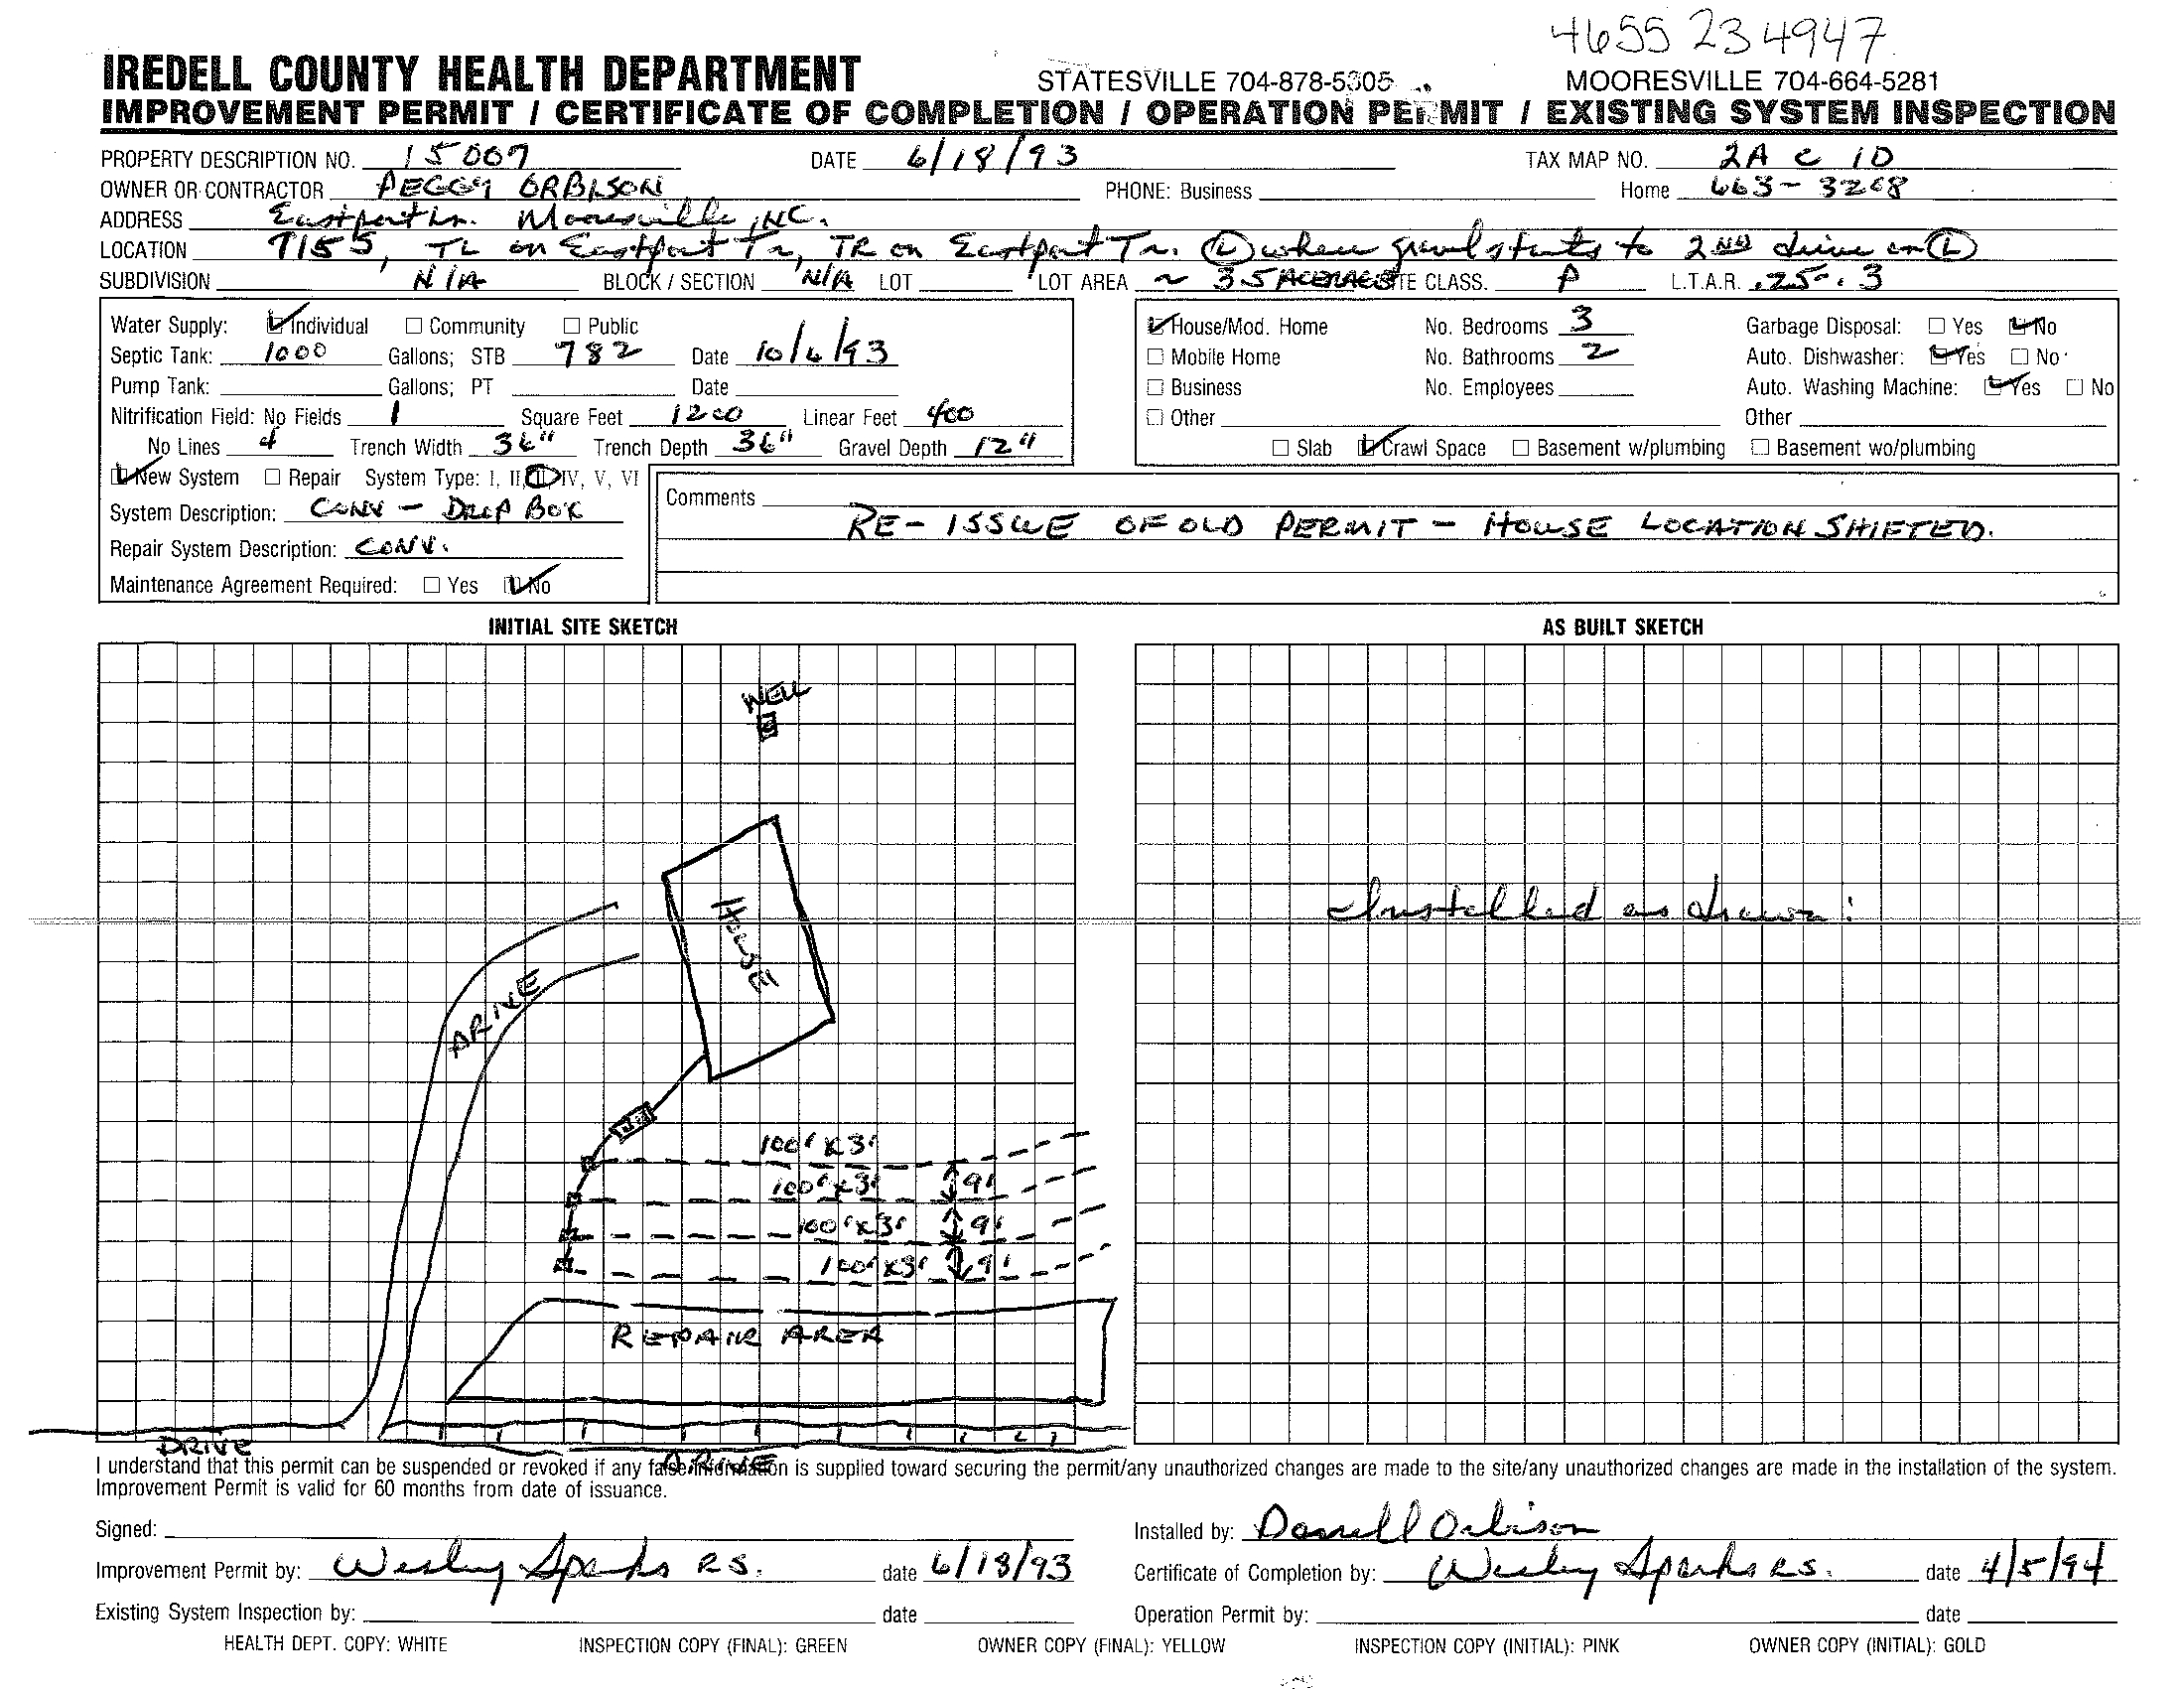 4655 23 4947
IREDELL COUNTY HEALTH DEPARTMENT STATESVILLE 704-878-5305 MOORESVILLE 704-664-5281
IMPROVEMENT PERMIT / CERTIFICATE OF COMPLETION / OPERATION PERMIT / EXISTING SYSTEM INSPECTION
PROPERTY DESCRIPTION NO. 15007 DATE 6/18/93 TAX MAP NO. 2A C 1D
OWNER OR CONTRACTOR PEGGY ORBISON PHONE: Business Home 663-3268
ADDRESS Eastport Ln. Mooresville, NC.
LOCATION 7155, TL on Eastport Tr, TR on Eastport Tr. (L) where gravel starts to 2ND drive on (L)
SUBDIVISION N/A BLOCK / SECTION N/A LOT LOT AREA ~ 3.5 ACERAGE SITE CLASS. P L.T.A.R. .25-.3
Water Supply: Individual Community Public
Septic Tank: 1000 Gallons; STB 782 Date 10/6/93
Pump Tank: Gallons; PT Date
Nitrification Field: No Fields 1 Square Feet 1200 Linear Feet 400
No Lines 4 Trench Width 36" Trench Depth 36" Gravel Depth 12"
House/Mod. Home No. Bedrooms 3 Garbage Disposal: Yes No
Mobile Home No. Bathrooms 2 Auto. Dishwasher: Yes No
Business No. Employees Auto. Washing Machine: Yes No
Other Other
Slab Crawl Space Basement w/plumbing Basement wo/plumbing
New System Repair System Type: I, II, III, IV, V, VI
System Description: CONV - DROP BOX
Repair System Description: CONV.
Maintenance Agreement Required: Yes No
Comments
RE-ISSUE OF OLD PERMIT - HOUSE LOCATION SHIFTED.
INITIAL SITE SKETCH AS BUILT SKETCH
WELL
HOUSE
DRIVE
100' X 3'
100' X 3' 9'
100' X 3' 9'
100' X 3' 9'
REPAIR AREA
DRIVE
DRIVE
Installed as drawn!
I understand that this permit can be suspended or revoked if any false information is supplied toward securing the permit/any unauthorized changes are made to the site/any unauthorized changes are made in the installation of the system.
Improvement Permit is valid for 60 months from date of issuance.
Signed: Installed by: Darrell Orbison
Improvement Permit by: Wesley Sparks R.S. date 6/18/93 Certificate of Completion by: Wesley Sparks R.S. date 4/5/94
Existing System Inspection by: date Operation Permit by: date
HEALTH DEPT. COPY: WHITE INSPECTION COPY (FINAL): GREEN OWNER COPY (FINAL): YELLOW INSPECTION COPY (INITIAL): PINK OWNER COPY (INITIAL): GOLD